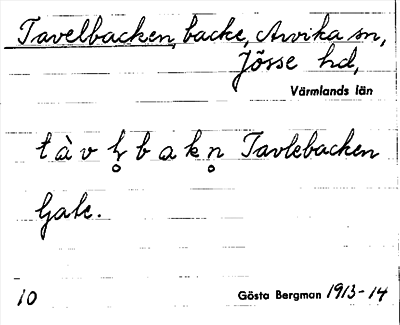 Tavelbacken, backe, Arvika sn,
Jösse hd,
Värmlands län
Tavlebacken
10
Gösta Bergman 1913-14